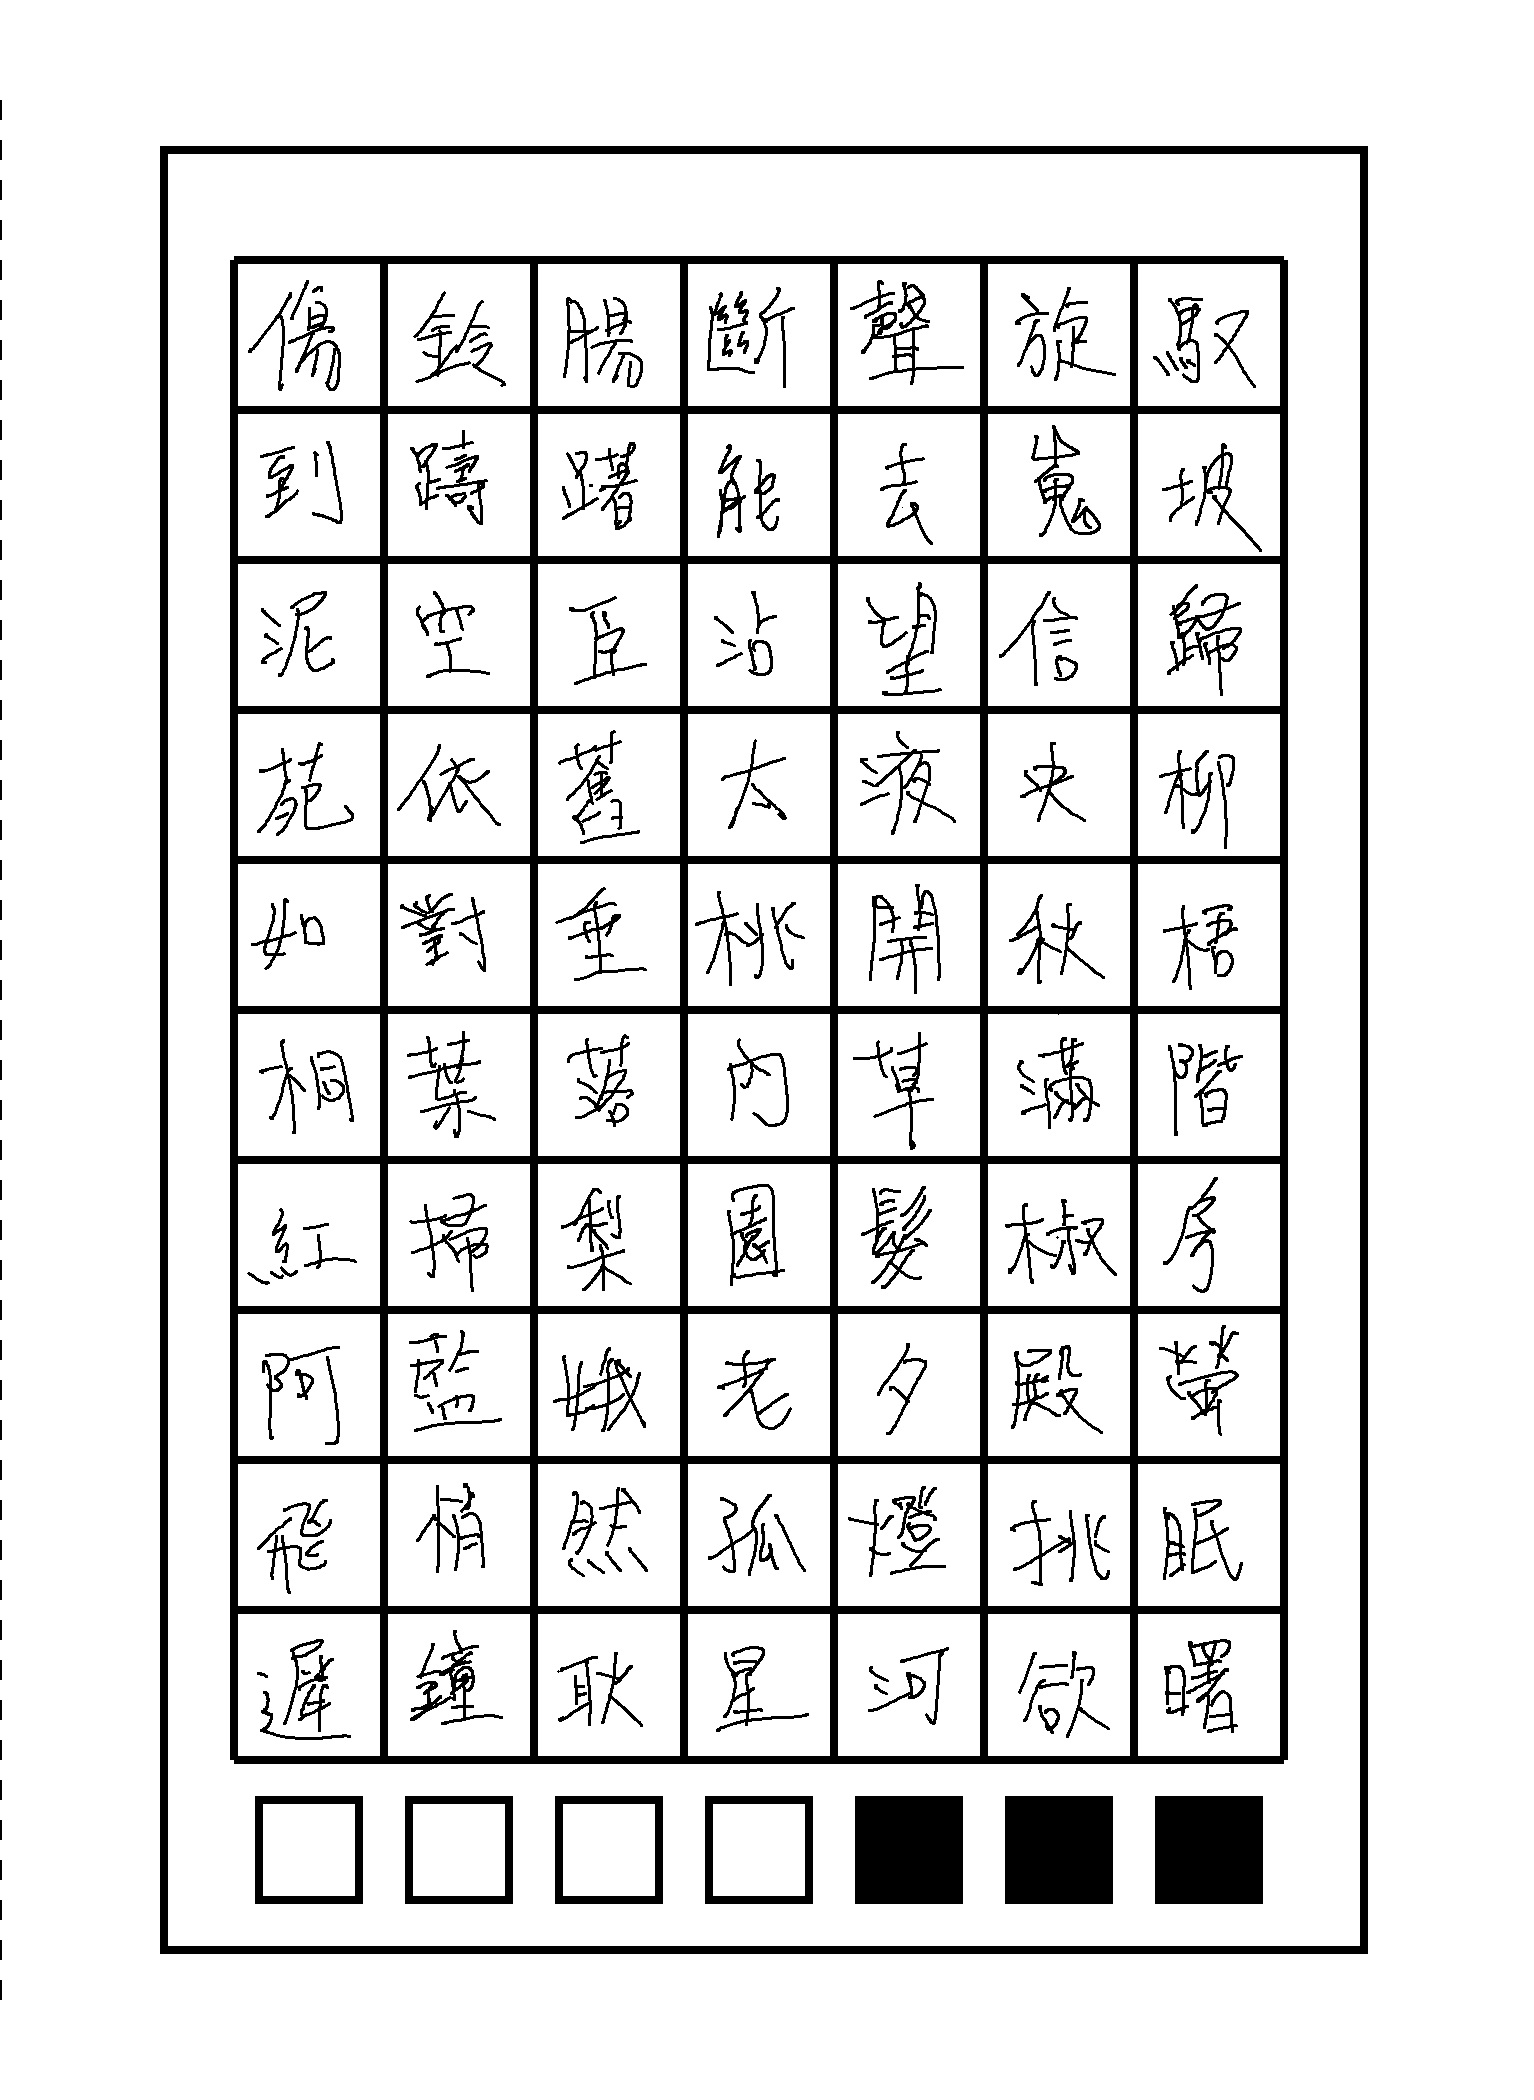 傷鈴腸斷聲旋馭
到躊躇能去嵬坡
泥空臣沾望信歸
苑依舊太液央柳
如對垂桃開秋梧
桐葉落內草滿階
紅掃梨園髮椒房
阿藍娥老夕殿螢
飛悄然孤燈挑眠
遲鐘耿星河欲曙